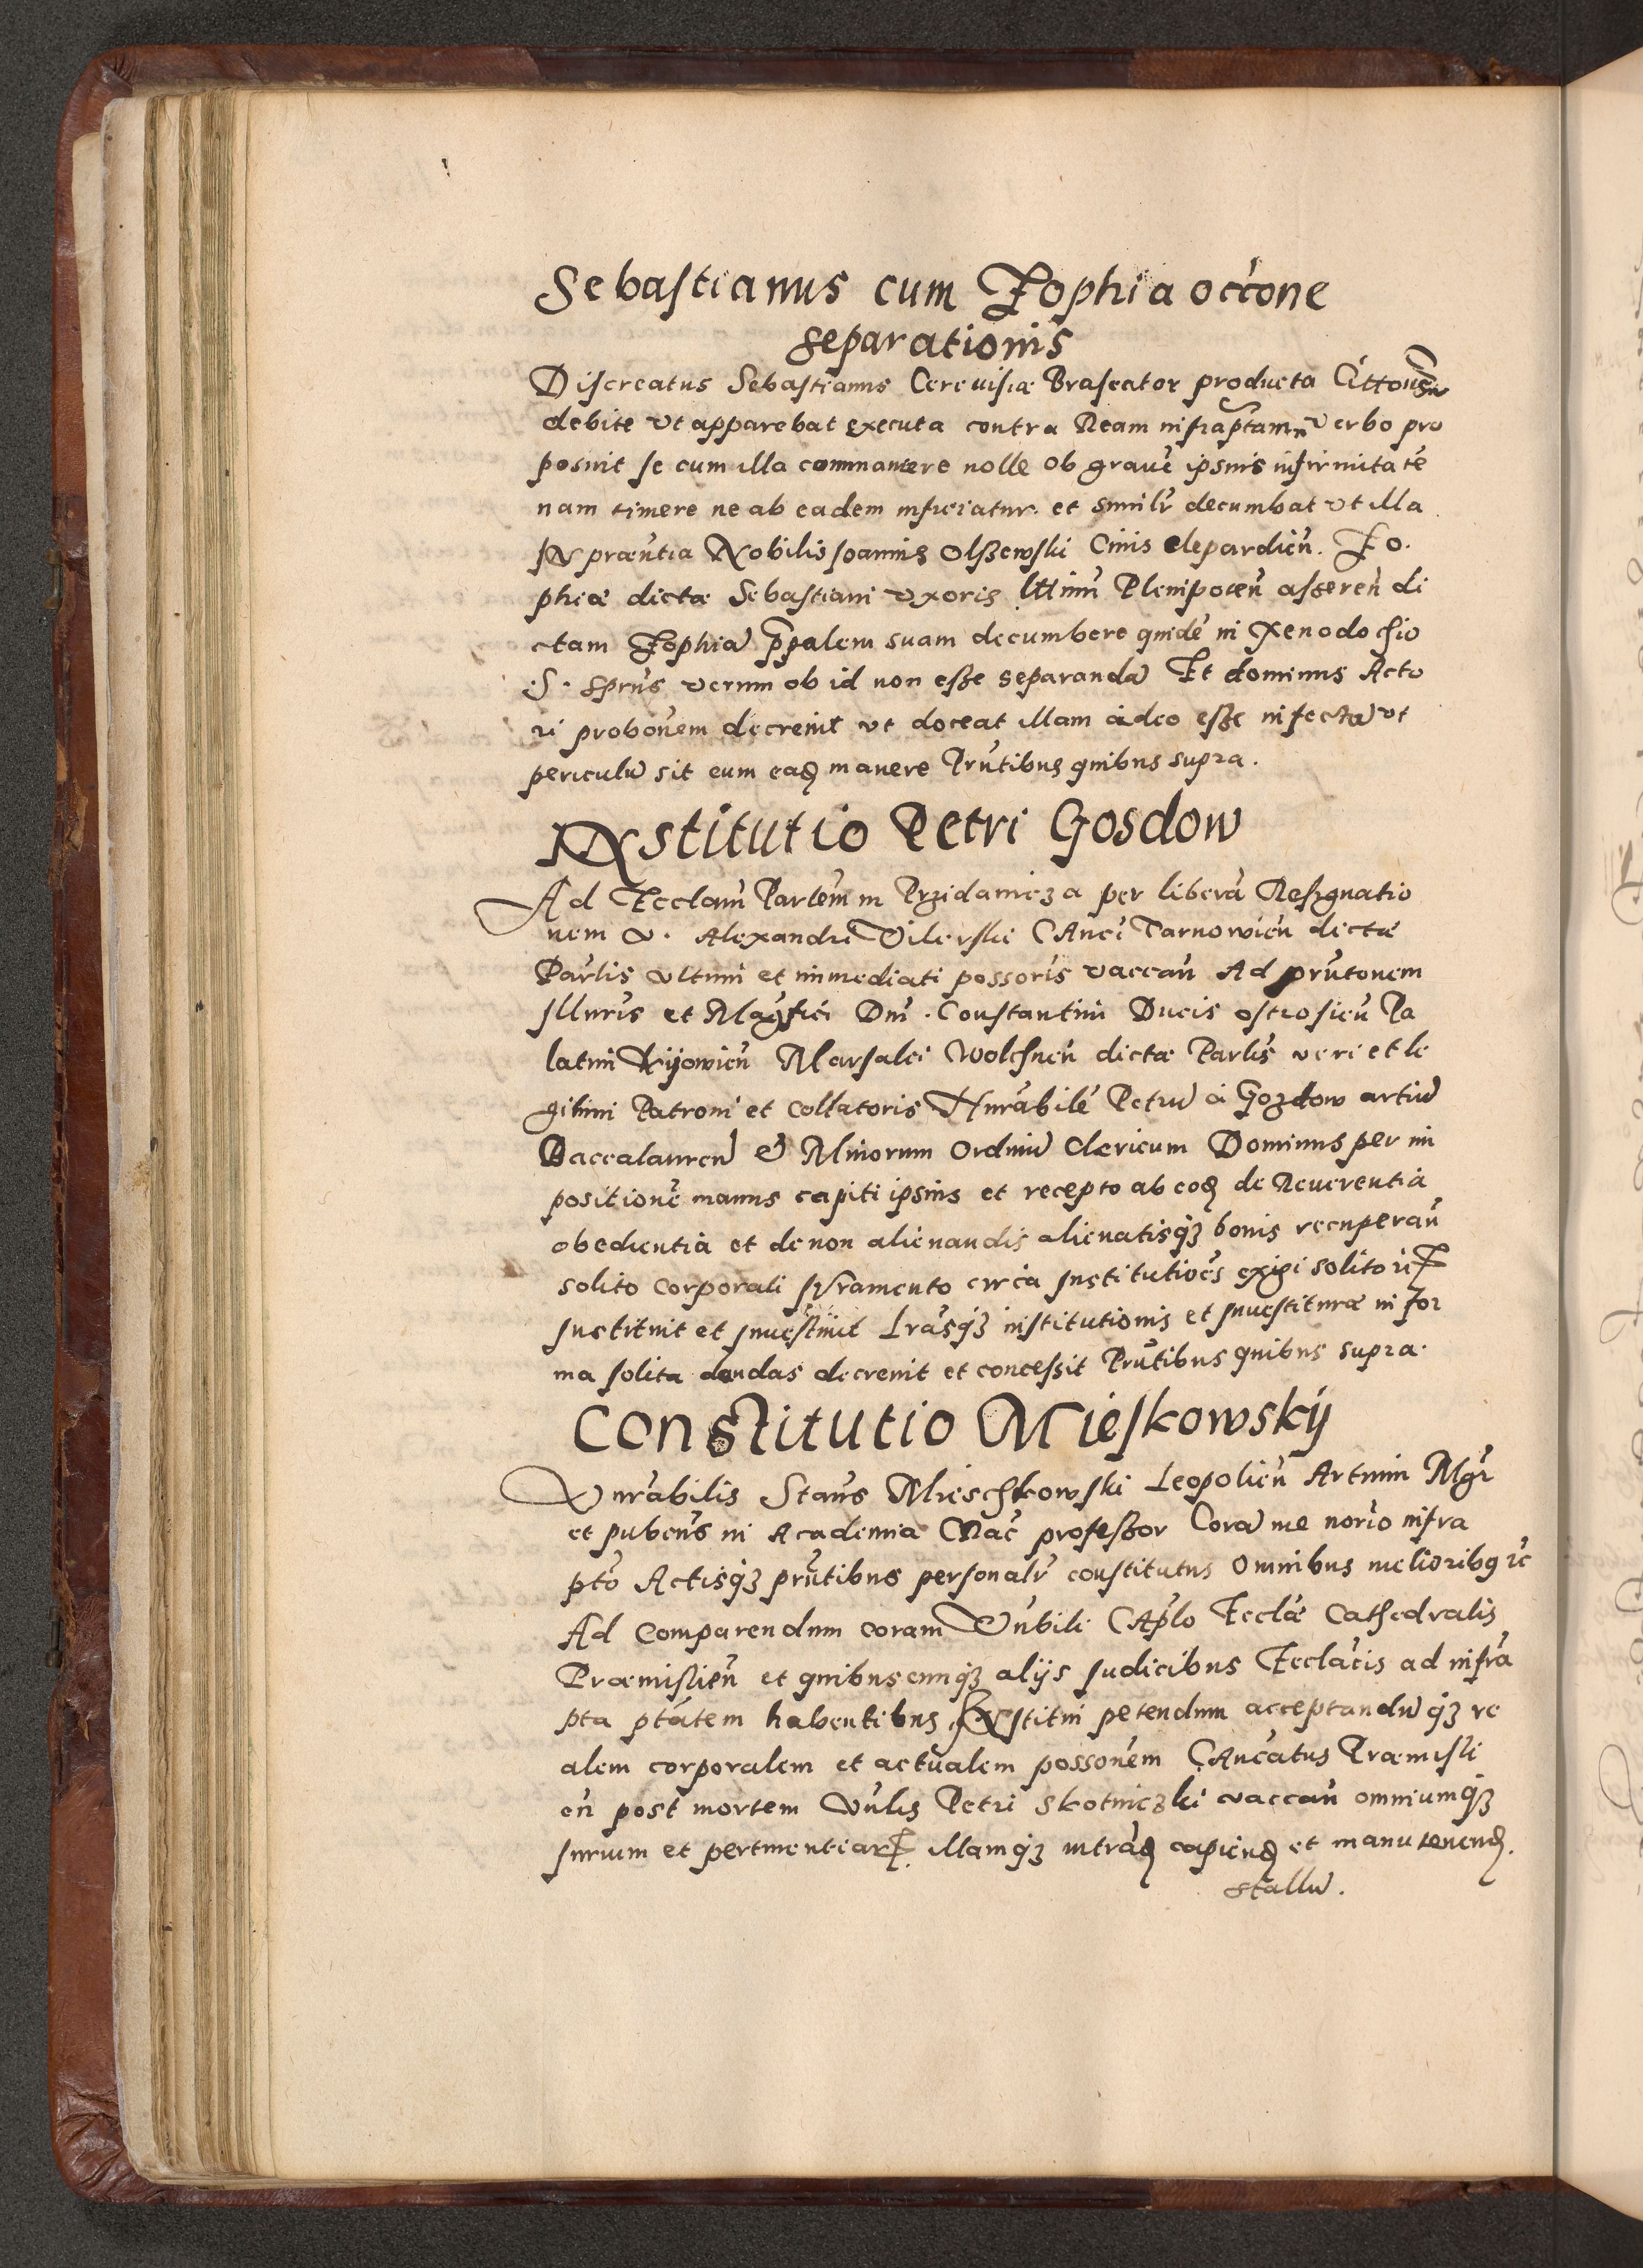 Sebastianus cum Zophia occõne
separationis
Discreatus Sebastianus Cerevisiæ Braseator producta Citton̄e
debite ut apparebat executa contra Ream infrap̃tam verbo pro
posuit se cum illa commanere nolle ob gravē ipsius infirmitatē
nam timere ne ab eadem inficiatur et similr̃ decumbat ut illa
In præñtia Nobilis Joannis Olßewski Civis Clepardieñ. Zo.
phiæ dictæ Sebastiani uxoris lttimũ Plenipoteñ asseren̄ di
ctam Zophiã pp̃alem suam decumbere quidē in Xenodochio
S. Sprũs verum ob id non eße separandã Et dominus Acto
ri probon̄em decrevit ut doceat illam ádeo eße infectã ut
periculũ sit cum eadꝫ manere Prñtibus quibus supra.
Institutio Petri Gosdow
Ad Eccl̃am Parlēm in Przidanicza per liberã Resignatio
nem V. Alexandri Vilerski Canci Tarnowieñ dictæ
Parlis Ultimi et immediati possoris vaccan̄ Ad prñtonem
Illuris et Magfici Dni. Constantini Ducis Ostrosieñ Pa
latini Kijowieñ Marsalci Wolhneñ dictæ Parlis veri et le
gitimi Patroni et Collatoris Hnrabilē Petrũ à Gozdow artiũ
Baccalaureũ & Minorum Ordinũ Clericum Dominus per im
positionē manus capiti ipsius et recepto ab eodꝫ de Reverentia
obedientia et de non alienandis alienatisqꝫ bonis recuperan̄
solito corporali Juramento circa Institutiões exigi solito
Instituit et Investivit Lrasqꝫ institutionis et Investituræ in for
ma solita dandas decrevit et concessit Prñtibus quibus supra.
Constitutio Mieskowskÿ
Vnrabilis Stans Mieschkowski Leopolieñ Artium Mgr̃
et pubcũs in Academia Crac̃ profeßor Corã me norio infra
pto Actisqꝫ prñtibus personalr̃ constitutus Omnibus melioribꝰ ꝛc
Ad Comparendum coram Vnbili Caplo Eccl̃æ Cathedralis
Præmislieñ et quibuscunqꝫ alijs Judicibus Eccl̃acis ad infra
pta ptatem habentibus Institui petendum acceptandũqꝫ re
alem corporalem et actualem possonem Cancatus Præmisli
eñ post mortem Vnlis Petri Skotniczki vaccan̄ omniumqꝫ
Jurium et pertinentiarꝫ illamqꝫ intrandꝫ capiendꝫ et manutenendꝫ.
stallũ.